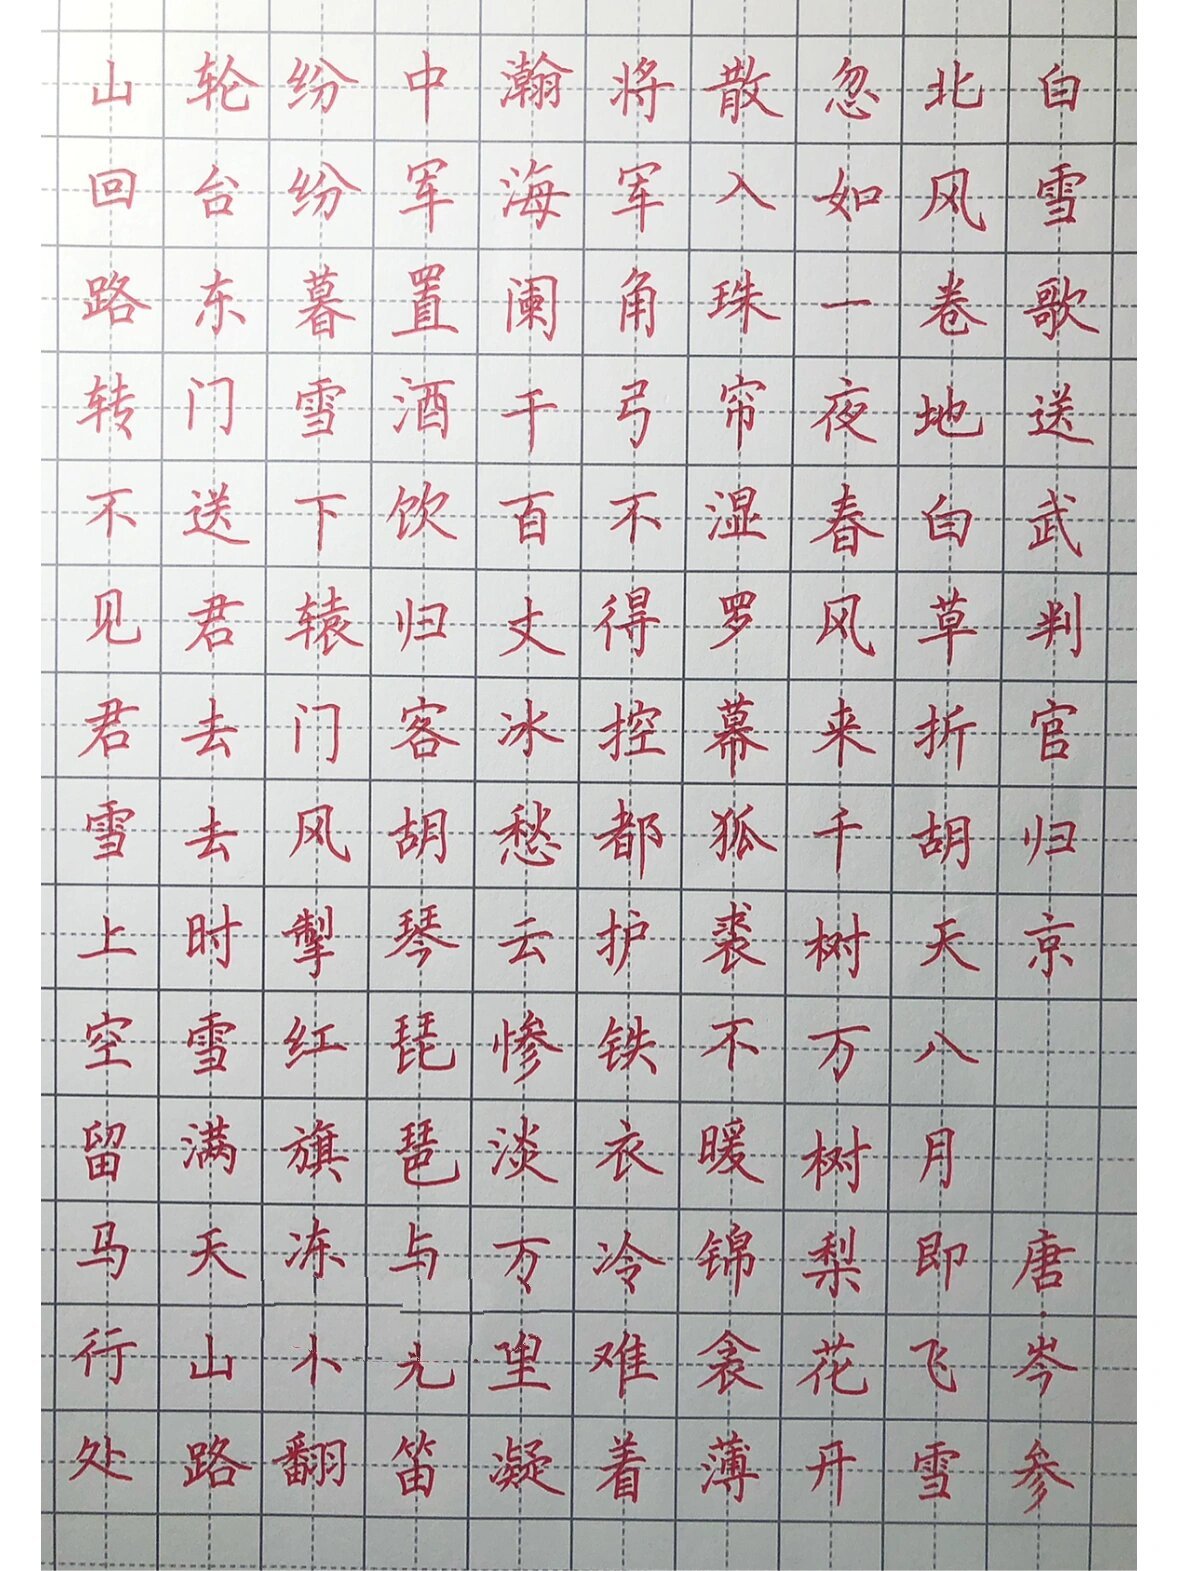 白雪歌送武判官归京 唐·岑参
北风卷地白草折胡天八月即飞雪
忽如一夜春风来千树万树梨花开
散入珠帘湿罗幕狐裘不暖锦衾薄
将军角弓不得控都护铁衣冷难着
瀚海阑干百丈冰愁云惨淡万里凝
中军置酒饮归客胡琴琵琶与笛
纷纷暮雪下辕门风掣红旗冻翻
轮台东门送君去去时雪满天山路
山回路转不见君雪上空留马行处